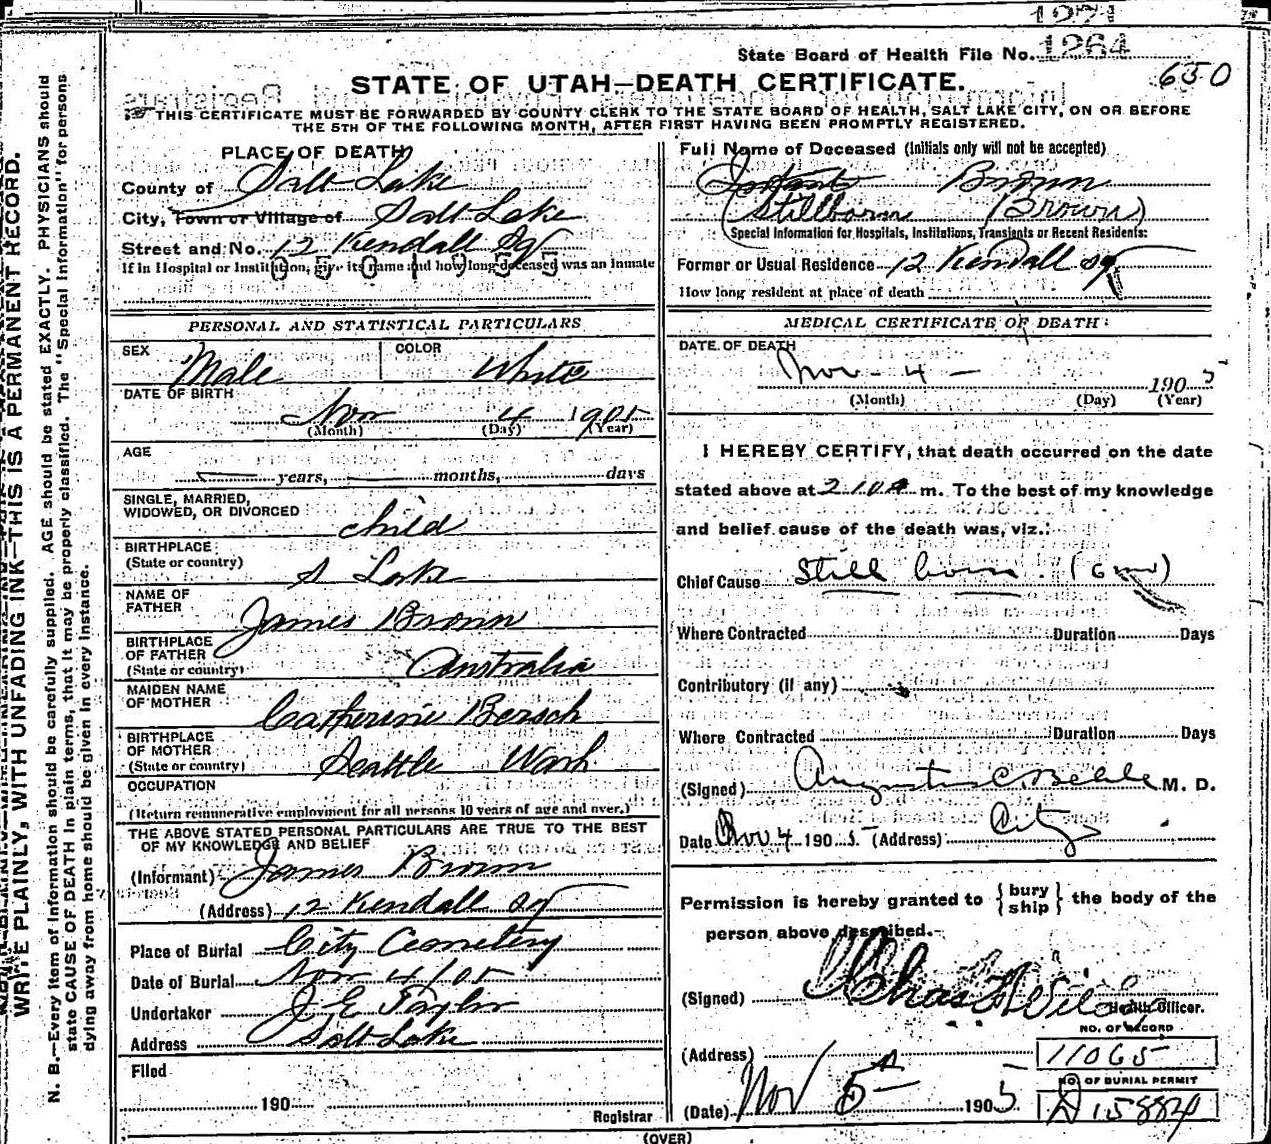 1271
State Board of Health File No. 1264
650
STATE OF UTAH—DEATH CERTIFICATE.
THIS CERTIFICATE MUST BE FORWARDED BY COUNTY CLERK TO THE STATE BOARD OF HEALTH, SALT LAKE CITY, ON OR BEFORE
THE 5TH OF THE FOLLOWING MONTH, AFTER FIRST HAVING BEEN PROMPTLY REGISTERED.
WRITE PLAINLY, WITH UNFADING INK—THIS IS A PERMANENT RECORD.
N. B.—Every item of information should be carefully supplied. AGE should be stated EXACTLY. PHYSICIANS should
state CAUSE OF DEATH in plain terms, that it may be properly classified. The "Special Information" for persons
dying away from home should be given in every instance.
PLACE OF DEATH
County of Salt Lake
City, Town or Village of Salt Lake
Street and No. 12 Kendall Sq
If in Hospital or Institution, give its name and how long deceased was an inmate
PERSONAL AND STATISTICAL PARTICULARS
SEX Male COLOR White
DATE OF BIRTH
Nov 4 1905
(Month) (Day) (Year)
AGE
years, months, days
SINGLE, MARRIED,
WIDOWED, OR DIVORCED child
BIRTHPLACE
(State or country) S Lake
NAME OF
FATHER James Brown
BIRTHPLACE
OF FATHER
(State or country) Australia
MAIDEN NAME
OF MOTHER Catherine Bersch
BIRTHPLACE
OF MOTHER
(State or country) Seattle Wash
OCCUPATION
(Return remunerative employment for all persons 10 years of age and over.)
THE ABOVE STATED PERSONAL PARTICULARS ARE TRUE TO THE BEST
OF MY KNOWLEDGE AND BELIEF
(Informant) James Brown
(Address) 12 Kendall Sq
Place of Burial City Cemetery
Date of Burial Nov 4/05
Undertaker J E Taylor
Address Salt Lake
Filed
190
Registrar
Full Name of Deceased (Initials only will not be accepted)
Infant Brown
(Stillborn Brown)
Special Information for Hospitals, Institutions, Transients or Recent Residents:
Former or Usual Residence 12 Kendall sq
How long resident at place of death
MEDICAL CERTIFICATE OF DEATH
DATE OF DEATH
Nov - 4 - 1905
(Month) (Day) (Year)
I HEREBY CERTIFY, that death occurred on the date
stated above at 2 10 A m. To the best of my knowledge
and belief cause of the death was, viz.:
Chief Cause Still born. (6 mo)
Where Contracted Duration Days
Contributory (if any)
Where Contracted Duration Days
(Signed) Augustus C. Behle M. D.
Date Nov 4 1905 (Address) City
Permission is hereby granted to {bury
ship} the body of the
person above described.
(Signed) Chas
Health Officer.
NO. OF RECORD
(Address) 11065
NO. OF BURIAL PERMIT
(Date) Nov 5th 1905 A 15884
(OVER)